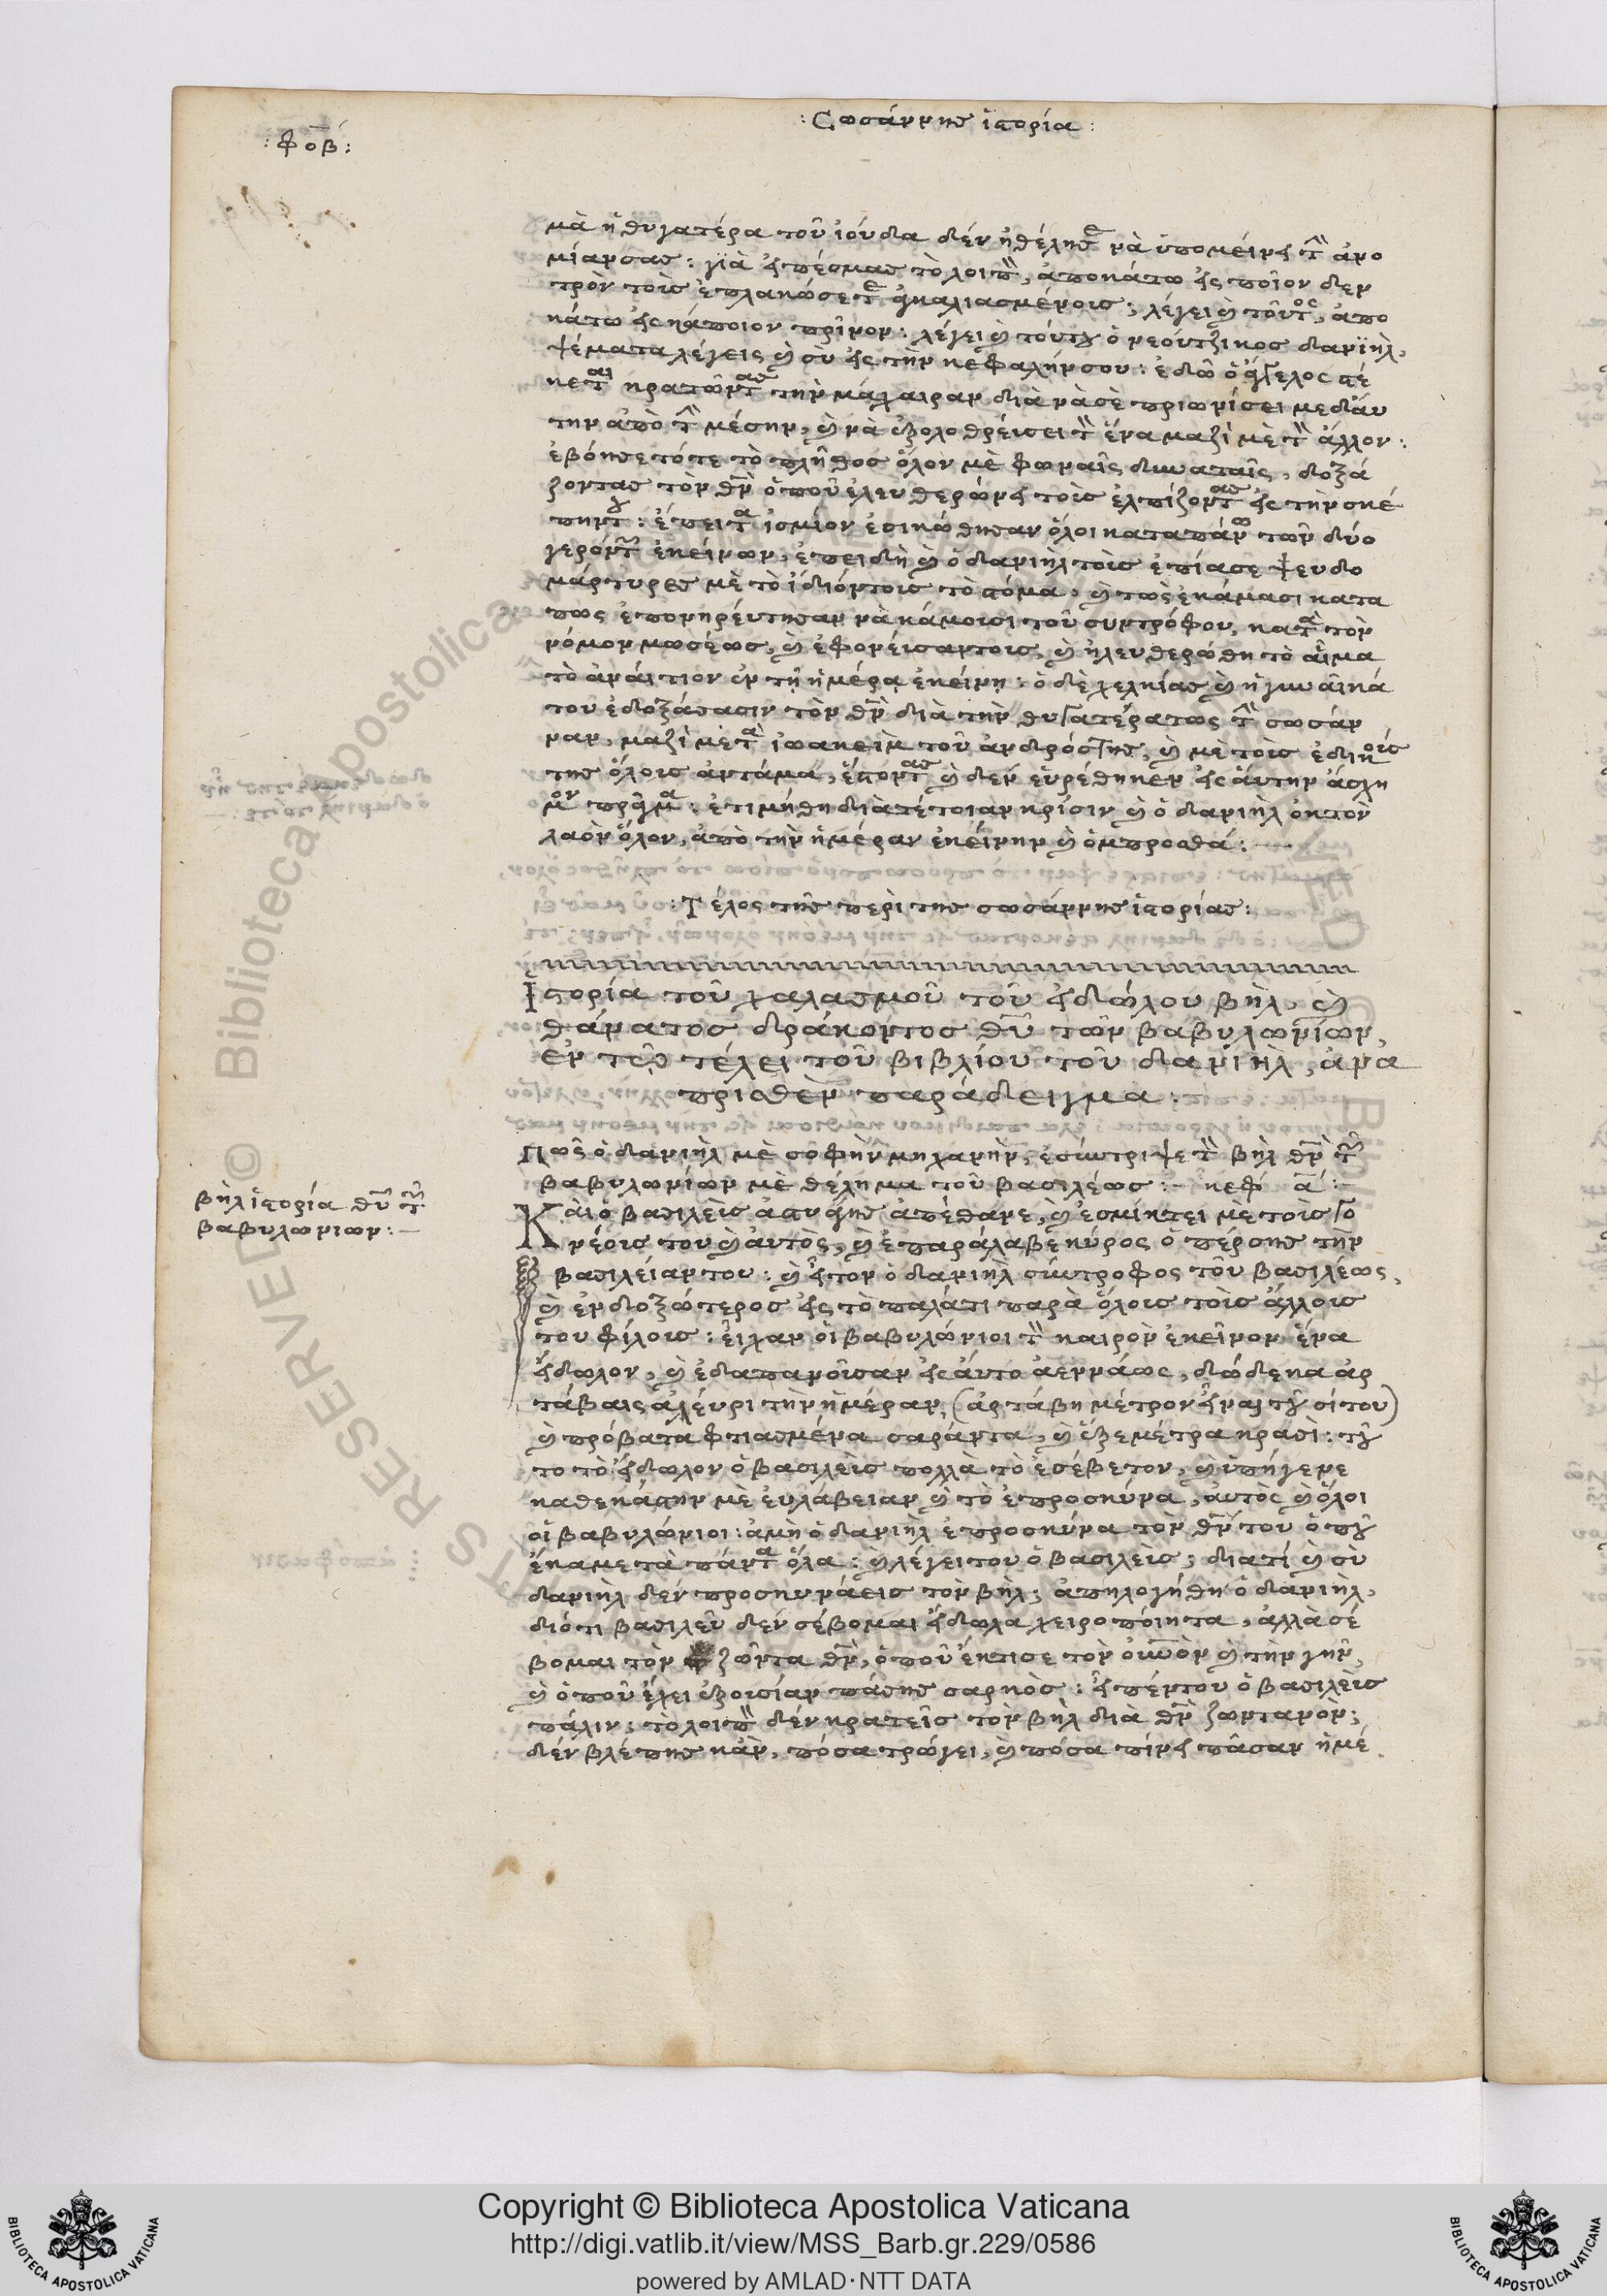 : Σωσάννης ἱστορία :
: φοβ΄ :
μὰ ἡ θυγατέρα τοῦ ἰούδα δέν ἠθέλησε νὰ ὑπομείνει τὴν ἀνο
μίανσας : γιὰ εἰπέσμας τὸ λοιπὸν, ἀποκάτω εἰς ποῖον δεν
τρὸν τοὶς ἐπλακώσετε ἀγκαλιασμένοις ; λέγει καὶ τοῦτος, ἀπο
κάτω εἰς κάποιον πρῖνον : λέγει καὶ τούτου ὁ νεούτζικος δανϊὴλ,
ψέματα λέγεις καὶ σὺ εἰς τὴν κεφαλήνσου : ἐδῶ ὁ ἄγγελος στέ
κεται κρατῶντας τὴν μάχαιραν διὰ νὰ σὲ πριωνίσει μεδάυ
την ἀπὸ τὴν μέσην, καὶ νὰ ἐξολοθρέισει τὸν ἕνα μαζὶ μὲ τὸν ἄλλον :
ἐβόησε τότε τὸ πλῆθος ὅλον μὲ φωναῖς δυναταῖς, δοξά
ζοντας τὸν θν̅ ὁποῦ ἐλευθερώνει τοὶς ἐλπίζοντας εἰς τὴν σκέ
πηντου : ἔπειτα ἰσμίον ἐσικώθησαν ὅλοι καταπάνω τῶν δύο
γερόντων ἐκείνων, ἐπειδὴ καὶ ὁ δανιὴλ τοὶς ἐπίασε ψευδο
μάρτυρες μὲ τὸ ἰδιόντοις τὸ στόμα, καὶ τὼς ἐκάμασι κατα
πως ἐπονηρέυτησαν νὰ κάμουσι τοῦ συντρόφου, κατὰ τὸν
νόμον μωσέως, καὶ ἐφονέισαντοις, καὶ ἠλευθερώθη τὸ αἷμα
τὸ ἀνάιτιον ἐν τῇ ἡμέρᾳ ἐκείνῃ : ὁ δὲ χελκίας καὶ ἡ γυναῖκά
του ἐδοξάσασιν τὸν θν̅ διὰ τὴν θυγατέρατως τὴν σωσάν
ναν, μαζὶ μὲ τὰ ἰωακεὶμ τοῦ ἀνδρόςτης, καὶ μὲ τοὶς ἐδικοῖς
της ὅλοις ἀντάμα, ἔστοντας καὶ δεν ἑυρέθηκεν εἰς ἄυτην ἄσχη
μον πρᾶγμα : ἐτιμήθη διὰ τέτοιαν κρίσιν καὶ ὁ δανιὴλ ὀκτὸν
λαὸν ὅλον, ἀπὸ τὴν ἡμέραν ἐκείνην καὶ ὀμπροσθά : —
: Τέλος τῆς περὶ της σωσάννης ἱστορίας :
Ἱστορία τοῦ χαλασμοῦ τοῦ εἰδώλου βὴλ, καὶ
θάνατος δράκοντος θυ̅ τῶν βαβυλωνίων,
ἐν τῷ τέλει τοῦ βιβλίου τοῦ δανιὴλ, ἀνα
πρισθὲν παράδειγμα :
Πῶς ὁ δανιὴλ μὲ σοφὴν μηχανὴν, ἐσύντριψε τὸν βὴλ θν̅ τῶν
βαβυλωνίων μὲ θέλημα τοῦ βασιλέως : — κεφ α΄ : —
βὴλ ἱστορία θυ̅ τῶν
βαβυλωνιων : —
Κὰι ὁ βασιλεὶς ἀστυάγης ἀπέθανε, καὶ ἐσμίκτει μὲ τοὶς γο
νέοις του καὶ ἀυτὸς, καὶ ἐπαράλαβε κύρος ὁ πέρσης τὴν
βασιλείαν του : καὶ εἶτον ὁ δανιὴλ σύντροφος τοῦ βασιλέως,
καὶ ἐνδοξώτερος εἰς τὸ παλάτι παρὰ ὅλοις τοὶς ἄλλοις
του φίλοις : ἔιχαν οἱ βαβυλώνιοι τὸν καιρὸν ἐκεῖνον ἕνα
εἴδωλον, καὶ ἐδαπανοῖσαν εἰς ἄυτο ἀεννάως, δώδεκα ἀρ
τάβαις ἀλέυρι τὴν ἡμέραν, (ἀρτάβη μέτρον εἶναι τοῦ σίτου)
καὶ πρόβατα φτιασμένα σαράντα, καὶ ἕξε μέτρα κρασὶ : τοῦ
το τὸ εἴδωλον ὁ βασιλεὶς πολλὰ τὸ ἐσέβετον, καὶ ὑπήγενε
καθεκάστην μὲ ἐυλάβειαν καὶ τὸ ἐπροσκύνα, ἀυτὸς καὶ ὅλοι
οἱ βαβυλώνιοι : ἀμὴ ὁ δανιὴλ ἐπροσκύνα τὸν θν̅ του ὁποῦ
ἔκαμε τὰ πάντα ὅλα : καὶ λέγει του ὁ βασιλεὶς ; διατί καὶ σὺ
δανιὴλ δεν προσκυνάεις τὸν βὴλ ; ἀπηλογήθη ὁ δανιὴλ,
διότι βασιλεῦ δεν σέβομαι εἴδωλα χειροπόιητα, ἀλλὰ σέ
βομαι τὸν ζῶντα θν̅, ὁποῦ ἔκτισε τὸν οὐνον καὶ τὴν γῆν,
καὶ ὁποῦ ἔχει ἐξουσίαν πάσης σαρκὸς : εἰπέντου ὁ βασιλεὶς
πάλιν ; τὸ λοιπὸν δέν κρατεῖς τὸν βὴλ διὰ θν̅ ζωντανὸν ;
δέν βλέπης κἂν, πόσα τρώγει, καὶ πόσα πίνει πᾶσαν ἡμέ
© Biblioteca Apostolica
Copyright © Biblioteca Apostolica Vaticana
http://digi.vatlib.it/view/MSS_Barb.gr.229/0586
powered by AMLAD·NTT DATA
BIBLIOTECA APOSTOLICA VATICANA
BIBLIOTECA APOSTOLICA VATICANA